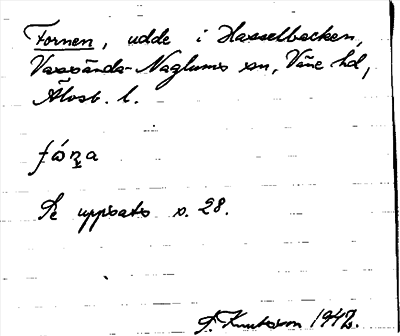 Fornen, udde i Hasselbacken,
Vassända-Naglums sn, Väne hd,
Älvsb. l.
fóṇa
Se uppsats s. 28.
Knutsson 1942.